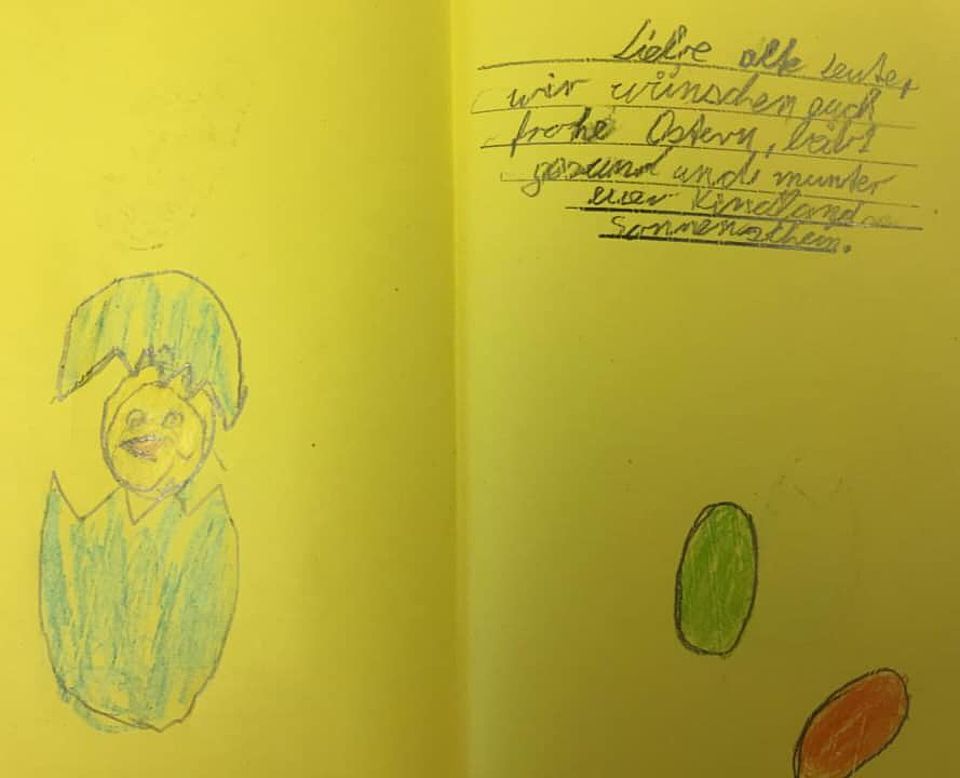 Liebe alte Leute,
wir wünschen euch
frohe Ostern, bleibt
gesund und munter
euer Kindland
Sonnenschein.